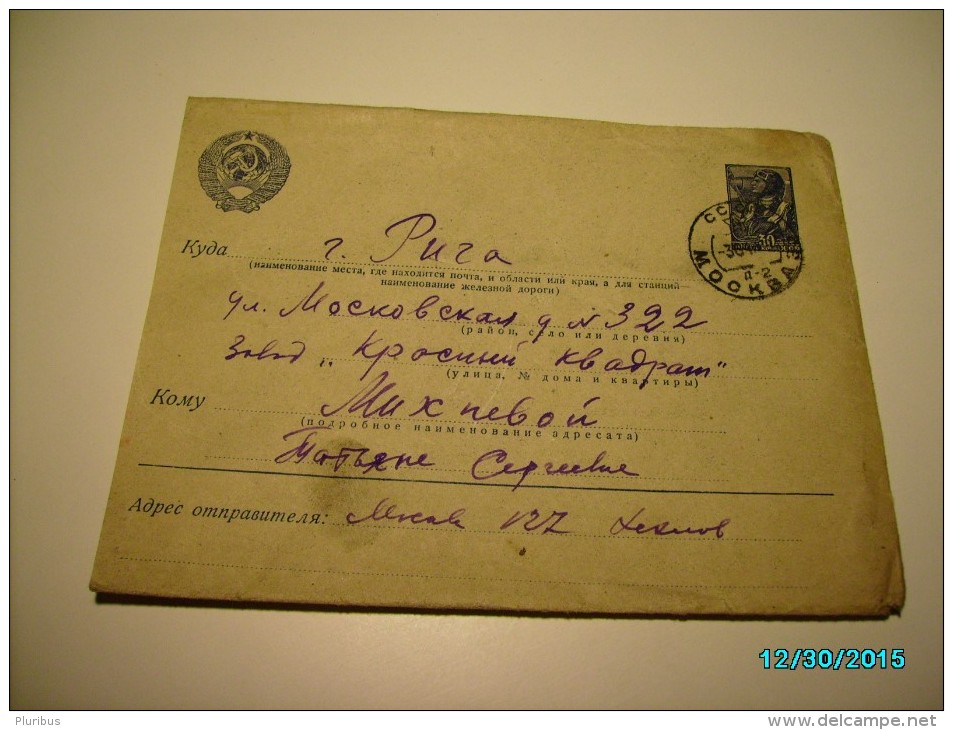 СССР
30
МОСКВА
Куда г. Рига
(наименование места, где находится почта, и области или края, а для станций
наименование железной дороги)
ул. Московская д № 322
(район, село или деревня)
Завод „Красный квадрат"
(улица, № дома и квартиры)
Кому Михневой
(подробное наименование адресата)
Татьяне Сергеевне
Адрес отправителя: Москва 127
12/30/2015
Pluribus
www.delcampe.net